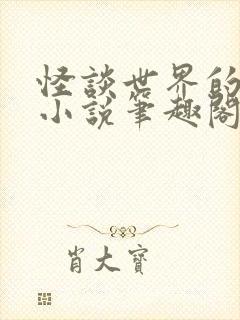 怪談世界的
小說筆趣閣
肖大寶